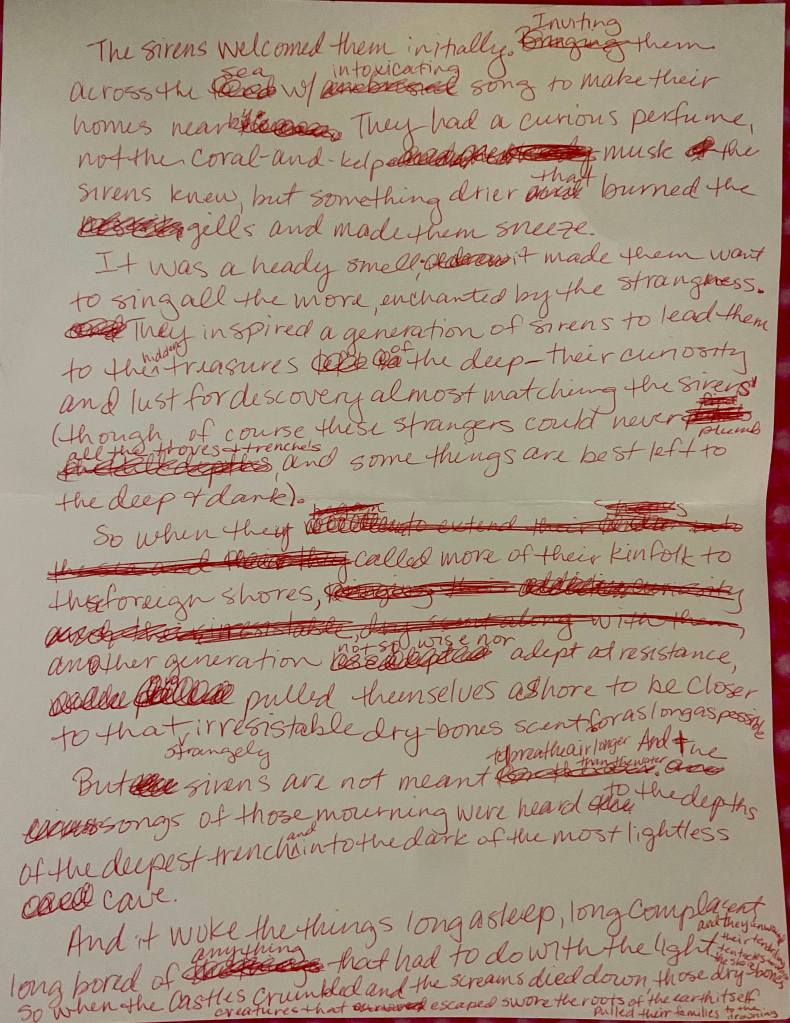 The sirens welcomed them initially. Inviting them
across the sea w/ intoxicating song to make their
homes nearby. They had a curious perfume,
not the coral-and-kelp musk the
sirens knew, but something drier that burned the
gills and made them sneeze.
It was a heady smell, it made them want
to sing all the more, enchanted by the strangness.
They inspired a generation of sirens to lead them
to the hidden treasures of the deep - their curiosity
and lust for discovery almost matching the sirens'
(though, of course these strangers could never plumb
all the troves + trenches, and some things are best left to
the deep + dark).
So when they
called more of their kinfolk to
these foreign shores,
another generation not so wise nor adept at resistance,
pulled themselves ashore to be closer
to that strangely irresistable dry-bones scent for as long as possible
But sirens are not meant to breathe air longer than the water. And the
songs of those mourning were heard to the depths
of the deepest trench and into the dark of the most lightless
cave.
And it woke the things long asleep, long complacent
long bored of anything that had to do with the light, and they unwound their tentacles
So when the castles crumbled and the screams died down, those dry bones
creatures that escaped swore the roots of the earth itself
pulled their families to the drowning